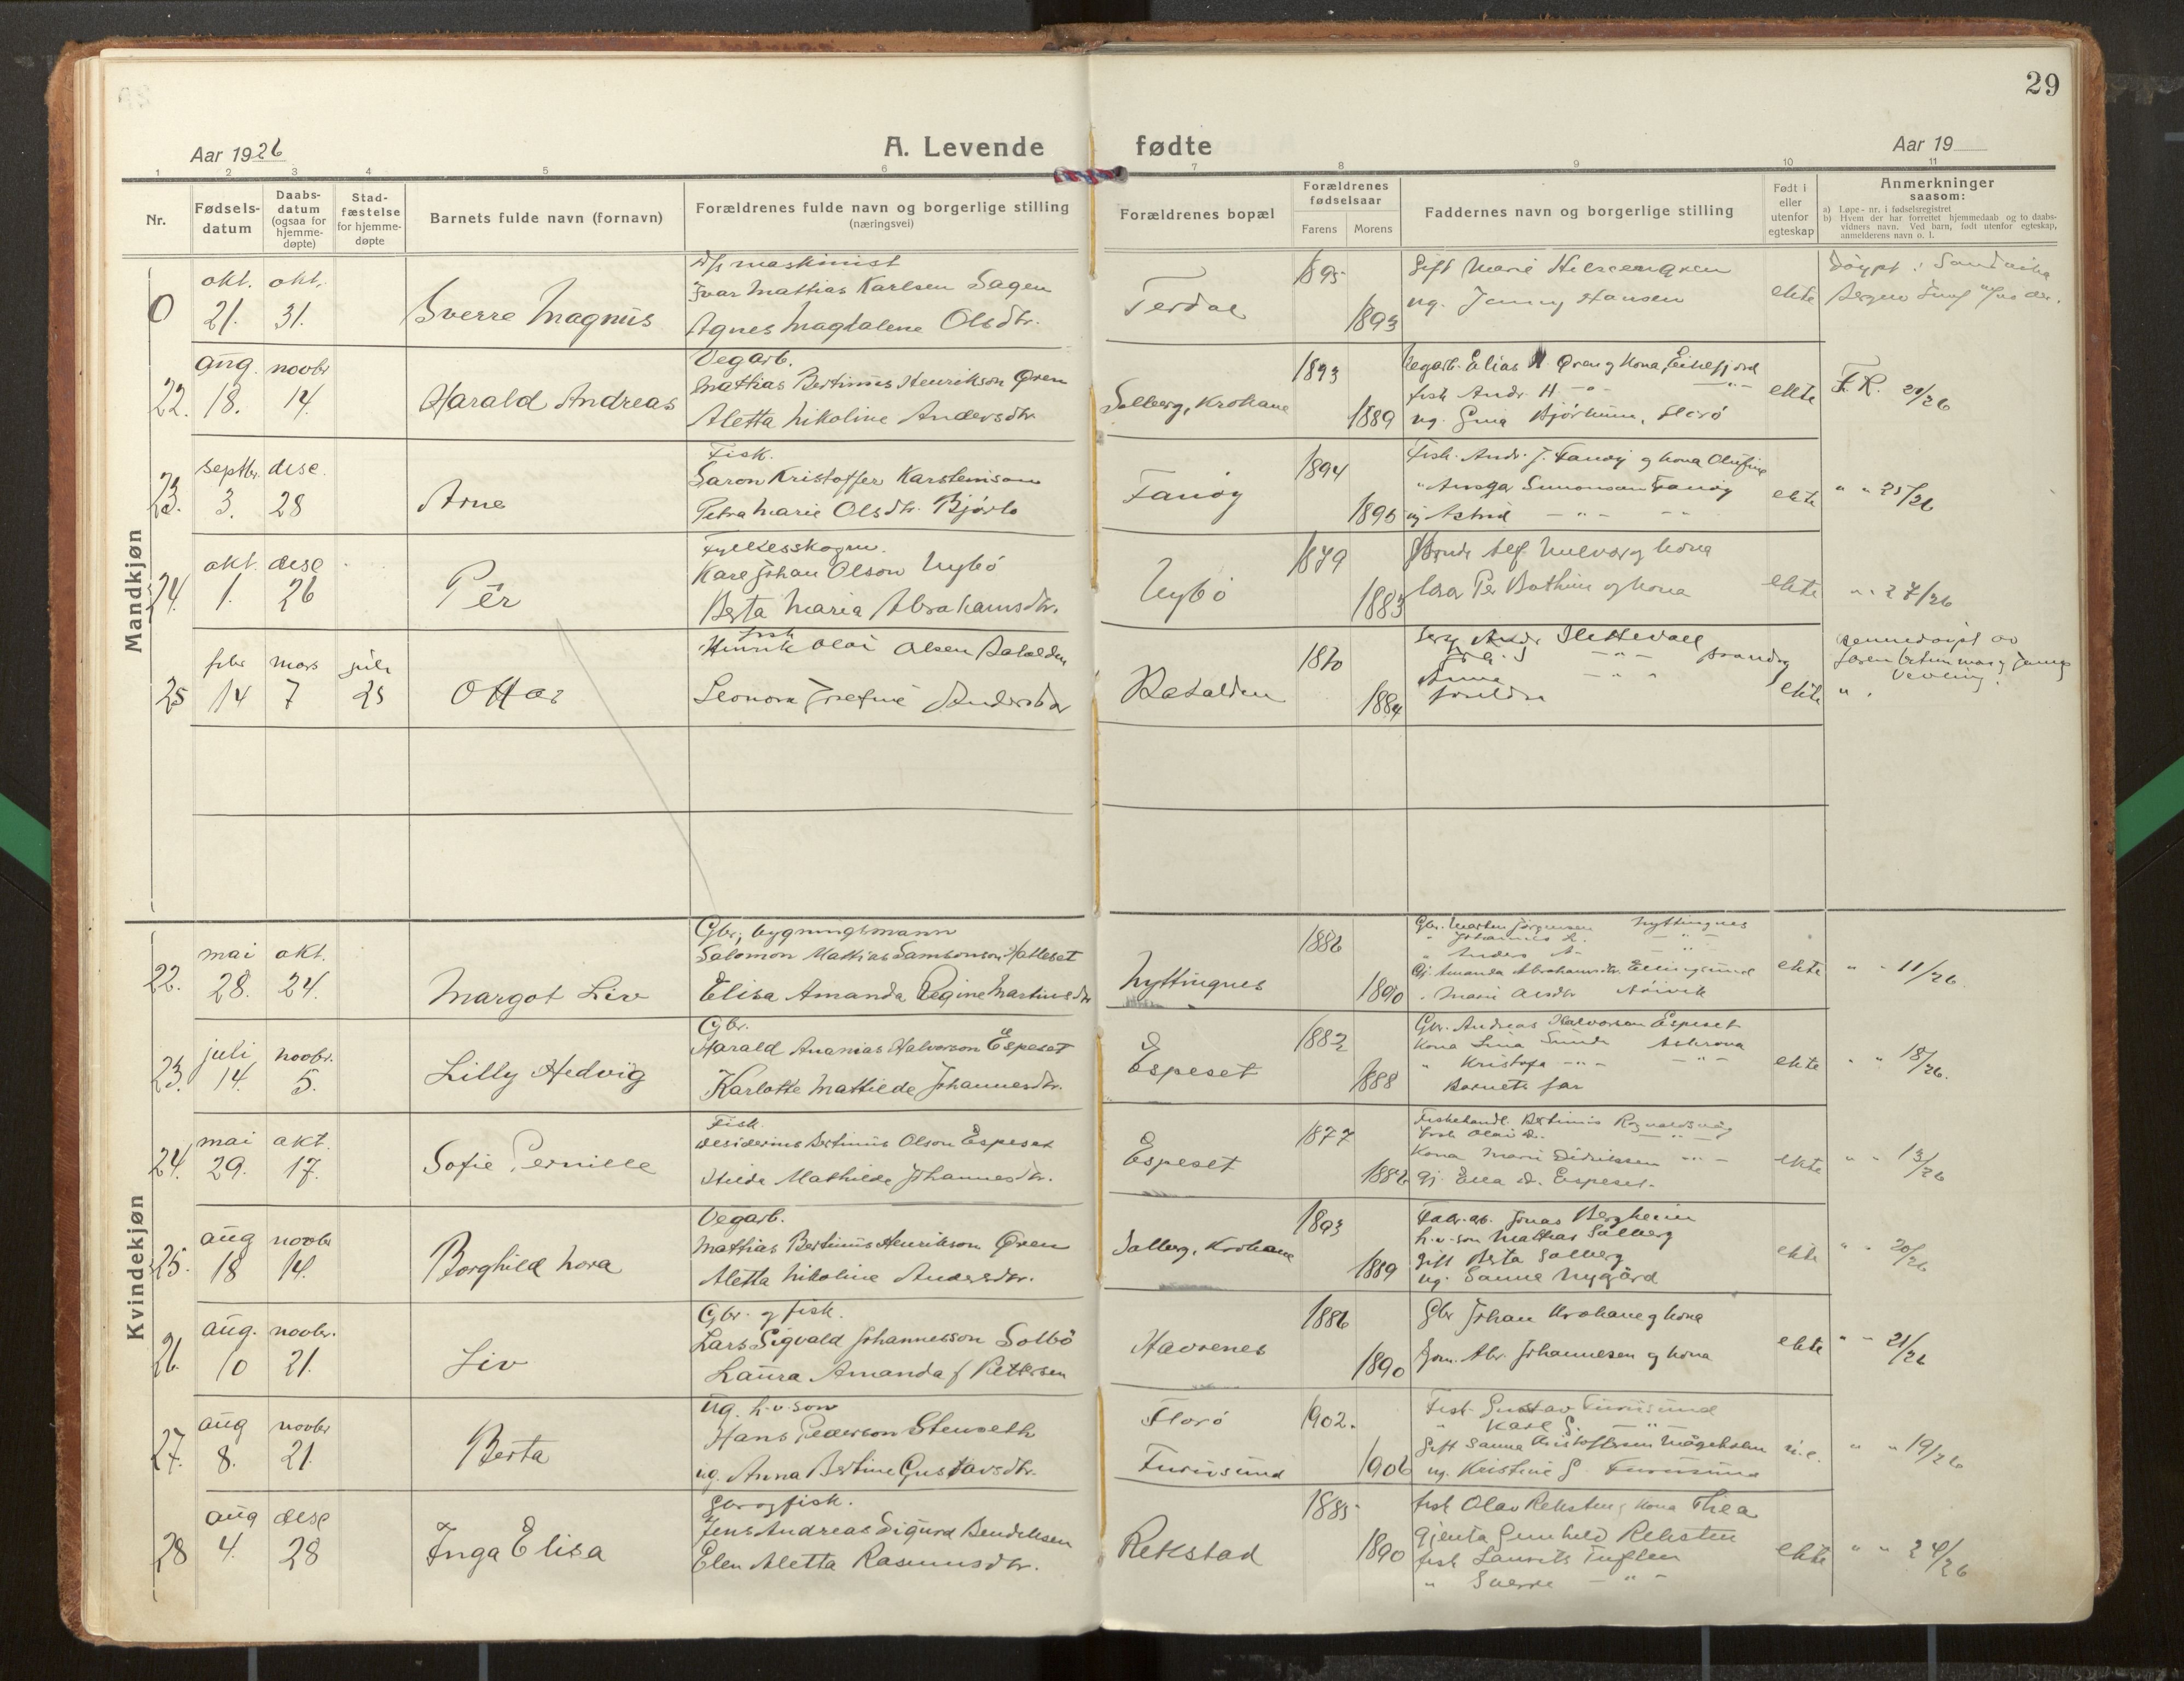 29
Aar 1926
A. Levende fødte
Aar 19
1 2 3 4 5 6 7 8 9 10 11
Nr.
Fødsels-
datum
Daabs-
datum
(ogsaa for
hjemme-
døpte)
Stad-
fæstelse
for hjemme-
døpte
Barnets fulde navn (fornavn)
Forældrenes fulde navn og borgerlige stilling
(næringsvei)
Forældrenes bopæl
Forældrenes
fødselsaar
Farens Morens
Faddernes navn og borgerlige stilling
Født i
eller
utenfor
egteskap
Anmerkninger
saasom:
a) Løpe-nr. i fødselsregistret
b) Hvem der har forrettet hjemmedaab og to daabs-
vidners navn. Ved barn, født utenfor egteskap,
anmelderens navn o. l.
Mandkjøn
0
okt. okt.
21. 31.
Sverre Magnus
D/s maskinist
Ivar Mathias Karlsen Sagen
Agnes Magdalene Olsdtr.
Terdal
1895
1893
Gift Marie
ug. Jenny Hansen
ekte
22.
aug. novbr
18. 14.
Harald Andreas
Vegarb.
Mathias Bertinus Henrikson Øren
Aletta Nikoline Andersdtr.
Solberg, Krokane
1893
1889
Vegarb. Elias H. Øren g kona Eikefjord
fisk Andr. H. – " –
ug. Gina Bjørkum, Florø
ekte
F. R. 20/26
23.
septbr. dese.
3. 28
Arne
Fisk.
Saron Kristoffer Karstenson
Petra Marie Olsdtr. Bjørlo
Fanøy
1894
1896
Fisk. Andr. J. Fanøy g kona Olufine
" Ansgar Simonsen Fanøy
ug Astrid – " –
ekte
" " 25/26
24.
okt. dese
1. 26
Per
Fylkesskogm.
Karl Johan Olson Nybö
Berta Maria Abrahamsdtr.
Nybö
1879
1883
kona
Per Bothun og kona
ekte
" " 27/26
25
febr mars juli
14 7 25
Ottar
fisk
Henrik Olai Olsen Batalden
Leonora Josefine Andersdtr
Batalden
1880
1884
Andr
Anna
foreldre
ekte
"
Kvindekjøn
22.
mai okt.
28. 24.
Margot Liv
Gbr, bygningsmann
Salomon Mathias Samsonson Hatleset
Elisa Amanda Regine Martinusdtr
Nyttingnes
1886
1890
Gbr. Morten Jørgensen Nyttingnes
" Johannes
" Anders A. – " –
Gj. Amanda Abrahamsdtr.
" Marie Olsdtr
ekte
" " 11/26.
23.
juli novbr.
14. 5.
Lilly Hedvig
Gbr.
Harald Ananias Halvorson Espeset
Karlotte Mathilde Johannesdtr.
Espeset
1882
1888
Gbr. Andreas Halvorsen Espeset
Kona Lina Sunde Askrova
" Kristofa – " –
Barnets far
ekte
" " 18/26.
24.
mai okt.
29. 17.
Sofie Pernille
Fisk.
Desiderius Bertinus Olson Espeset
Hilda Mathilde Johannesdtr.
Espeset
1877
1886
Fiskehandl. Bertinus Rognaldsvåg
Fisk Olai D. – " –
Kona Marie Didriksen – " –
Gj. Ella D. Espeset
ekte
" " 13/26
25.
aug novbr
18 14.
Borghild Nora
Vegarb.
Mathias Bertinus Henrikson Øren
Aletta Nikoline Andersdtr.
Solberg, Krokane
1893
1889
Fabr. arb. Jonas Bergheim
h.v. son Mathias Solberg
Gift Berta Solberg
ug. Sanna Nygård
ekte
" " 20/26
26.
aug. novbr.
10 21.
Liv
Gbr. g fisk.
Lars Sigvald Johannesson Solbö
Laura Amanda f Pettersen
Havrenes
1886
1890
Gbr Johan Krokane g kona
Gom. Abr. Johannesen g kona
ekte
" " 21/26
27.
aug novbr
8. 21.
Berta
ug. h.v. son
Hans Pederson Stenseth
ug. Anna Bertine Gustavsdtr.
Florø
Furusund
1902.
1906
Fisk Gustav Furusund
" Karl G. – " –
Gift Sanna Kristoffersen
ug. Kristine G. Furusund
u.e.
" " 19/26
28
aug dese
4. 28
Inga Elisa
Gbr og fisk.
Jens Andreas Sigurd Bendiksen
Elen Aletta Rasmusdtr.
Rekstad
1885
1890
fisk Olav Reksten g kona Thea
Gjenta Gunhild Reksten
fisk Laurits Tuften
" Sverre – " –
ekte
" " 24/26